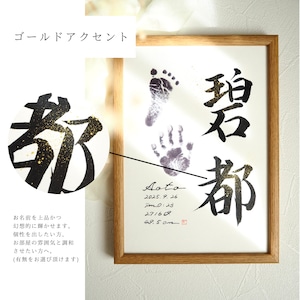 ゴールドアクセント
都
碧都
Aoto
2025.9.26
2716g
48.5cm
お名前を上品かつ
幻想的に輝かせます。
個性を出したい方、
お部屋の雰囲気と調和
させたい方へ。
(有無をお選び頂けます)